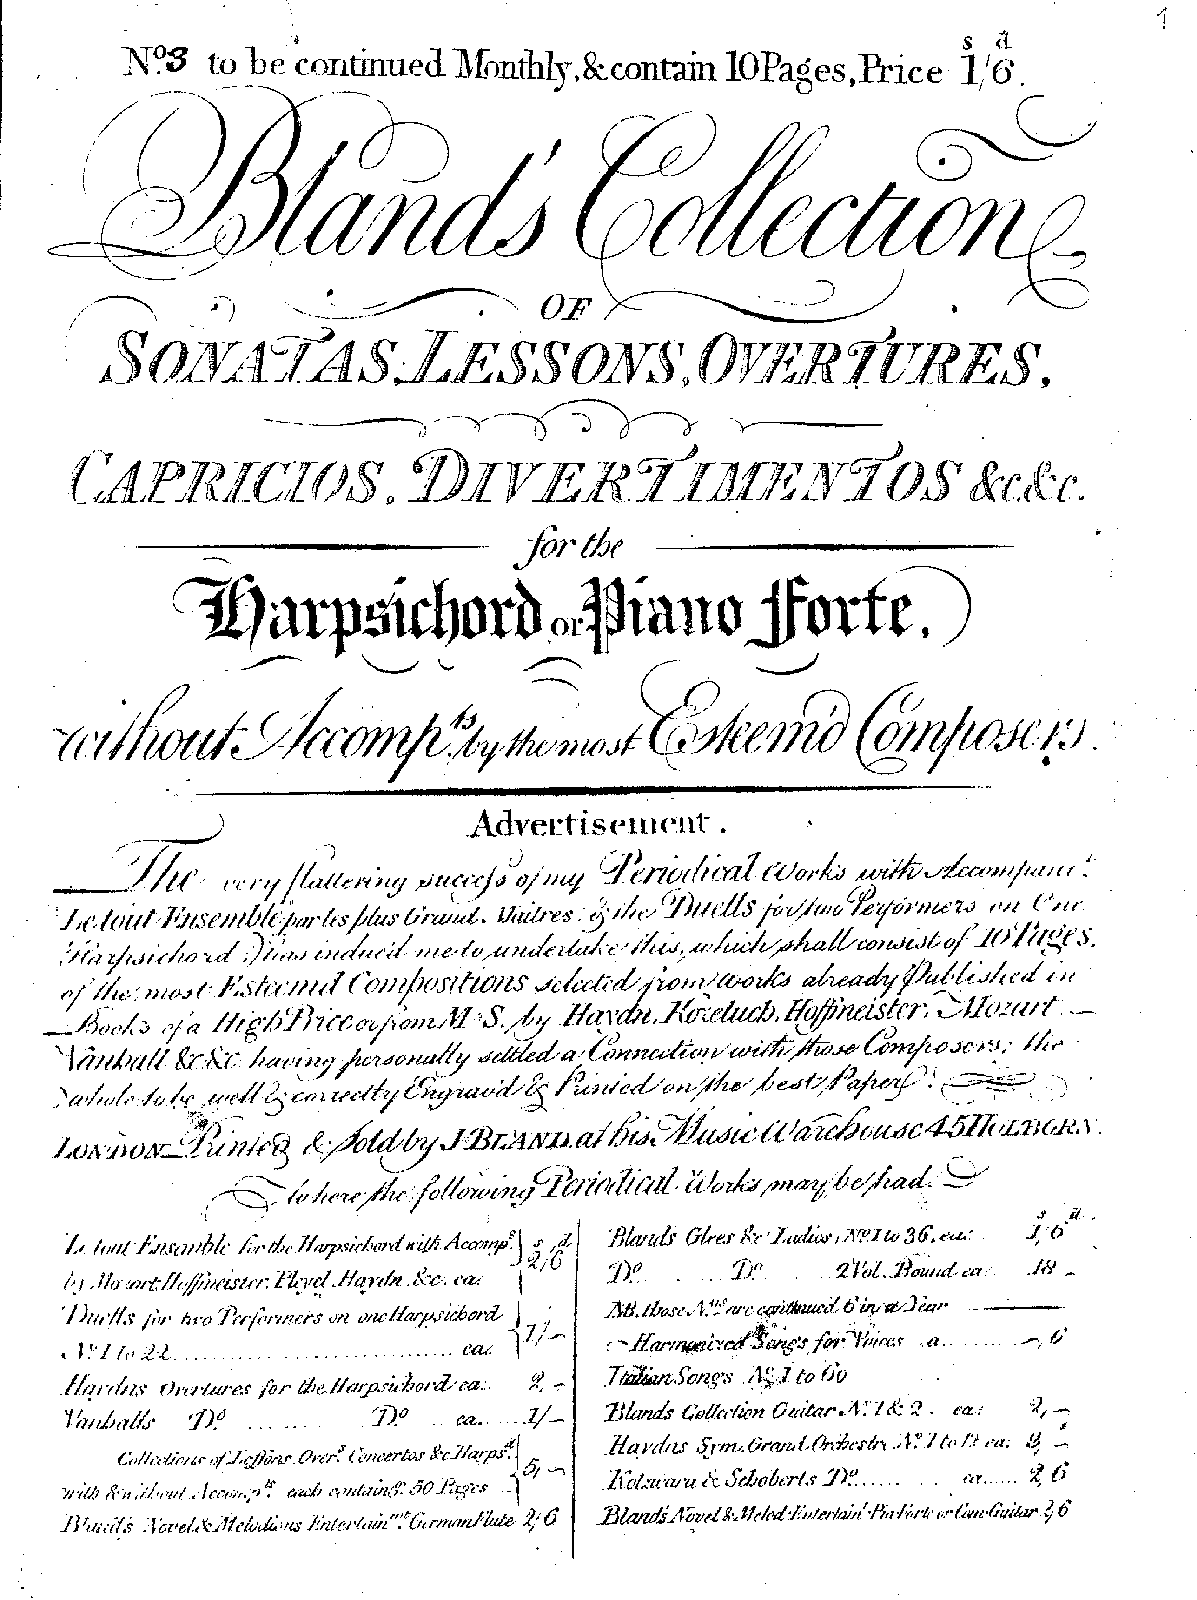 1
No. 3 to be continued Monthly, & contain 10 Pages, Price 1s/6d.
Bland's Collection
OF
SONATAS, LESSONS, OVERTURES,
CAPRICIOS, DIVERTIMENTOS &c &c.
for the
Harpsichord or Piano Forte,
without Accompts. by the most Esteem'd Composers.
Advertisement.
The very flattering success of my Periodical Works with Accompanit.
Le tout Ensemble par les plus Grand. Maitres. & the Duetts for two Performers on One
Harpsichord has induc'd me to undertake this, which shall consist of 10 Pages,
of the most Esteem'd Compositions selected from works already Published in
Books of a High Price or from M.S. by Haydn, Kozeluch, Hoffmeister, Mozart
Vanhall &c &c having personally settled a Connection with those Composers; the
whole to be well & correctly Engrav'd & Printed on the best Paper.
LONDON Printed & Sold by J. BLAND at his Music Warehouse 45 HOLBORN.
where the following Periodical Works may be had.
Le tout Ensemble for the Harpsichord with Accomps. s d
by Mozart, Hoffmeister, Pleyel, Haydn &c. ea: 2/6
Duetts for two Performers on one Harpsichord
No. 1 to 22 ea: 1/–
Haydns Overtures for the Harpsichord ea: 2,–
Vanhalls Do. Do. ea. 1/–
Collections of Lessons, Overs. Concertos &c Harpsd.
with & without Accompts. each containg. 50 Pages 5,–
Bland's Novel & Melodious Entertainmt. German Flute 2,6
Blands Glees &c Ladies, No. 1 to 36, ea: 1s,6d
Do. Do. 2 Vol. Bound ea: 18 –
NB. those Nos. are continued 6 in a Year
Harmonized Songs for Voices a –,6
Italian Songs No. 1 to 60
Blands Collection Guitar No. 1 & 2. ea: 2,–
Haydns Sym. Grand Orchestre No. 1 to 12 ea: 3,–
Kotzwara & Schoberts Do. ea 2,6
Bland's Novel & Melod. Entertain Pia Forte or Guitar 2,6